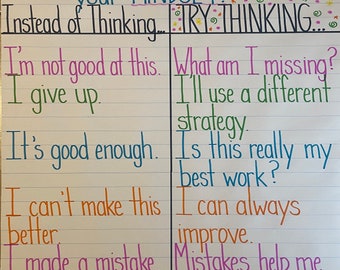 your MINDSET!
Instead of Thinking... TRY THINKING...
I'm not good at this. What am I missing?
I give up. I'll use a different
strategy.
It's good enough. Is this really my
best work?
I can't make this I can always
better. improve.
I made a mistake Mistakes help me